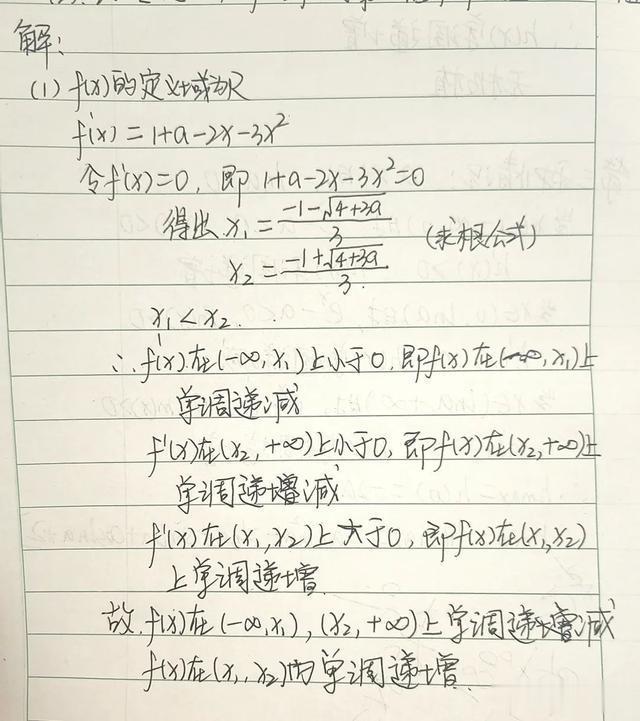 解:
(1) f(x)的定义域为R
f'(x) = 1+a-2x-3x²
令f'(x)=0, 即 1+a-2x-3x²=0
得出 x₁ = (-1-√(4+3a))/3 (求根公式)
x₂ = (-1+√(4+3a))/3.
x₁ < x₂.
∴ f'(x)在(-∞, x₁)上小于0, 即f(x)在(-∞, x₁)上
单调递减
f'(x)在(x₂, +∞)上小于0, 即f(x)在(x₂, +∞)上
单调递减
f'(x)在(x₁, x₂)上大于0, 即f(x)在(x₁, x₂)
上单调递增.
故 f(x)在(-∞, x₁), (x₂, +∞)上单调递减
f(x)在(x₁, x₂)内单调递增.